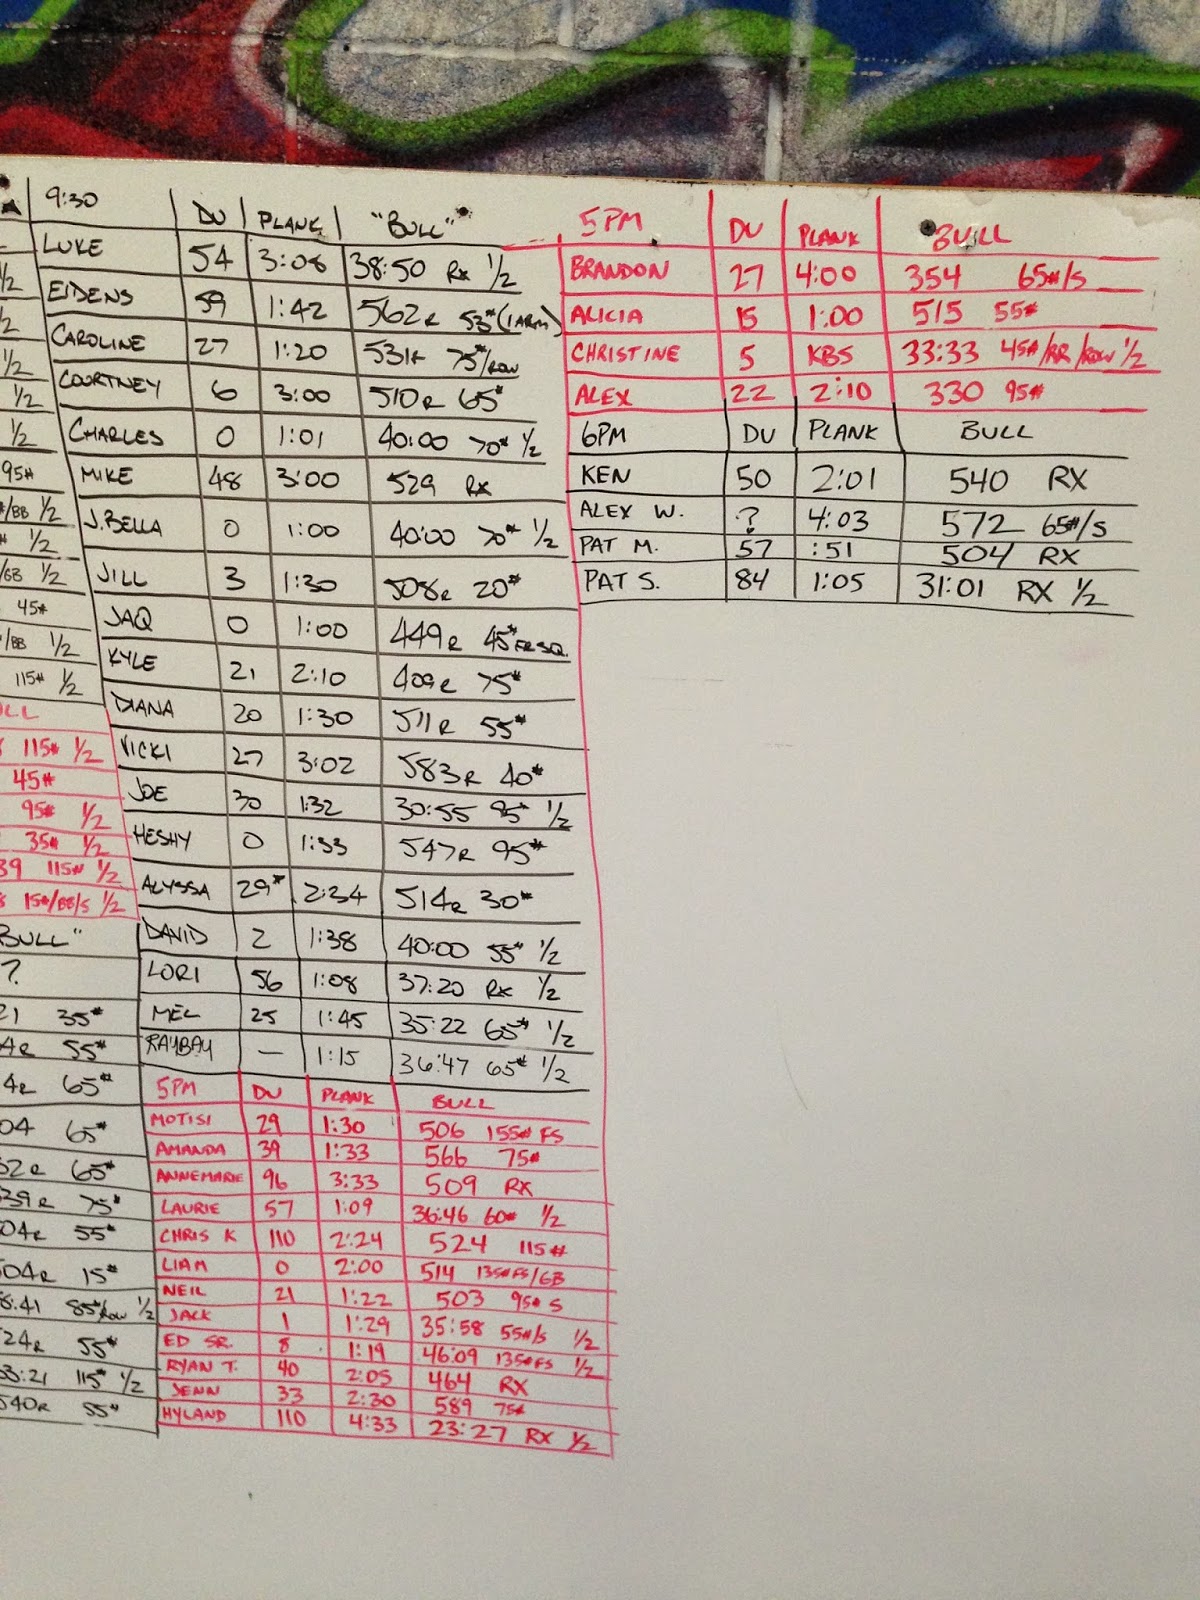 1/2
1/2
1/2
1/2
1/2
95#
#/BB 1/2
# 1/2
/BB 1/2
45#
#/BB 1/2
115# 1/2
LL
115# 1/2
45#
95# 1/2
35# 1/2
39 115# 1/2
15#/BB/S 1/2
BULL"
?
21 35#
4R 55#
4R 65#
04 65#
52R 65#
39R 75#
04R 55#
04R 15#
8:41 85#/ROW 1/2
24R 55#
33:21 115# 1/2
540R 55#
9:30 DU PLANK "BULL"
LUKE 54 3:08 38:50 RX 1/2
EIDENS 59 1:42 562R 53# (1 ARM)
CAROLINE 27 1:20 531R 75#/ROW
COURTNEY 6 3:00 510R 65#
CHARLES 0 1:01 40:00 70# 1/2
MIKE 48 3:00 529 RX
J.BELLA 0 1:00 40:00 70# 1/2
JILL 3 1:30 508R 20#
JAQ 0 1:00 449R 45# FR SQ.
KYLE 21 2:10 409R 75#
DIANA 20 1:30 511R 55#
VICKI 27 3:02 583R 40#
JOE 30 1:32 30:55 95# 1/2
HESHY 0 1:33 547R 95#
ALYSSA 29* 2:34 514R 30#
DAVID 2 1:38 40:00 55# 1/2
LORI 56 1:08 37:20 RX 1/2
MEL 25 1:45 35:22 65# 1/2
RAYBAY — 1:15 36:47 65# 1/2
5PM DU PLANK BULL
MOTISI 29 1:30 506 155# FS
AMANDA 39 1:33 566 75#
ANNEMARIE 96 3:33 509 RX
LAURIE 57 1:09 36:46 60# 1/2
CHRIS K 110 2:24 524 115#
LIAM 0 2:00 514 135# FS/GB
NEIL 21 1:22 503 95# S
JACK 1 1:29 35:58 55#/S 1/2
ED SR. 8 1:19 46:09 135# FS 1/2
RYAN T. 40 2:05 464 RX
JENN 33 2:30 589 75#
HYLAND 110 4:33 23:27 RX 1/2
5PM DU PLANK BULL
BRANDON 27 4:00 354 65#/S
ALICIA 15 1:00 515 55#
CHRISTINE 5 KBS 33:33 45#/RR/ROW 1/2
ALEX 22 2:10 330 95#
6PM DU PLANK BULL
KEN 50 2:01 540 RX
ALEX W. ? 4:03 572 65#/S
PAT M. 57 :51 504 RX
PAT S. 84 1:05 31:01 RX 1/2